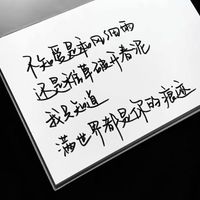 不知道是和风细雨
还是稻草破开春泥
我只知道
满世界都是你的痕迹